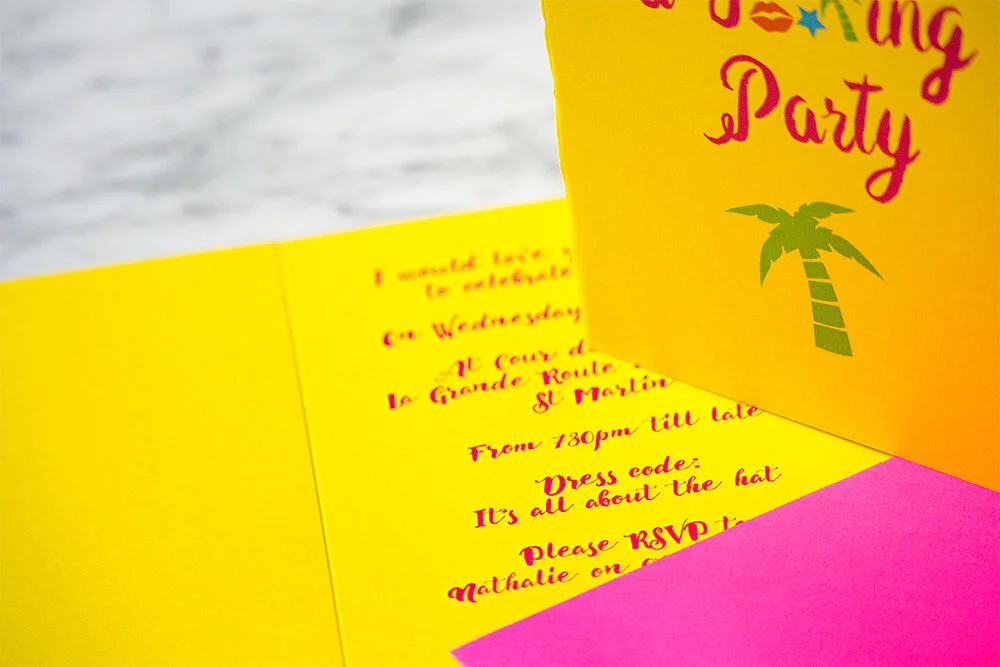 ing
Party
I would love
to celebrate
On Wednesday
At Cour d
La Grande Route
St Martin
From 730pm till late
Dress code:
It's all about the hat
Please RSVP to
Nathalie on